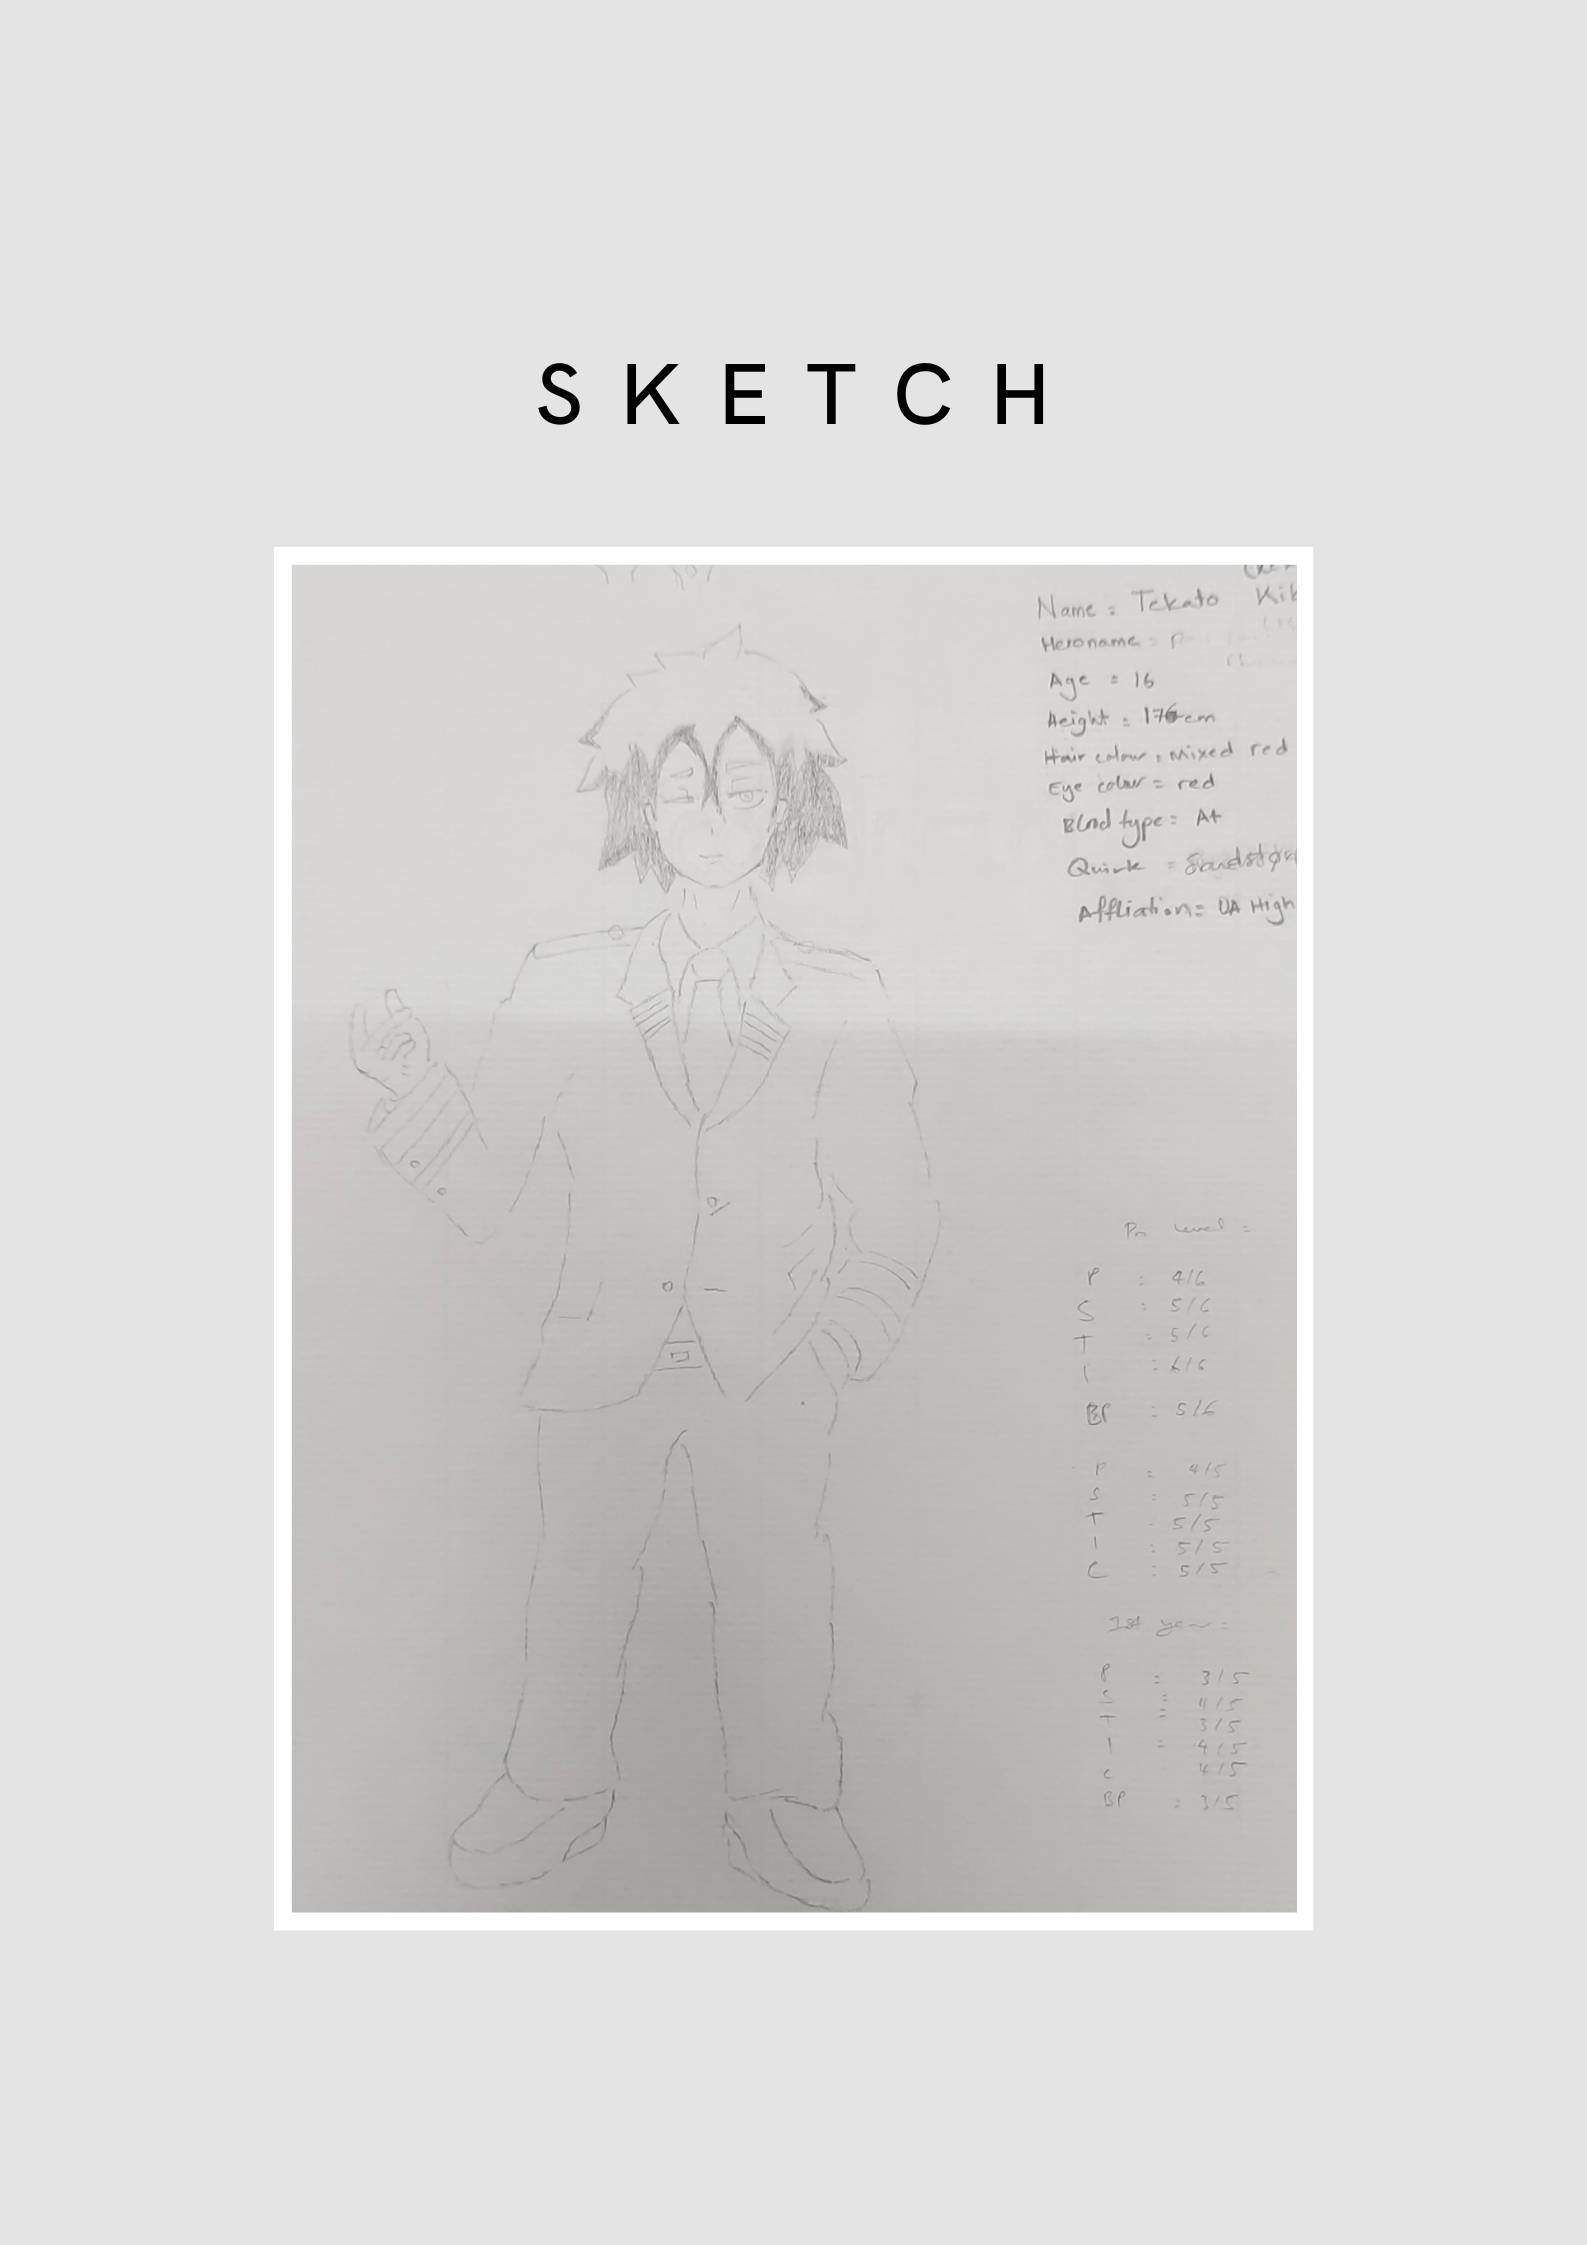 SKETCH
Name = Tekato Kik
Heroname =
Age = 16
Height = 176cm
Hair colour = Mixed red
Eye colour = red
Blood type = A+
Quirk = Sandstor
Affliation = UA High
Level =
P : 4/6
S : 5/6
T : 5/6
I : 6/6
BP : 5/6
P : 4/5
S : 5/5
T - 5/5
I : 5/5
C : 5/5
1st year :
P = 3/5
S = 4/5
T = 3/5
I = 4/5
C 4/5
BP = 3/5